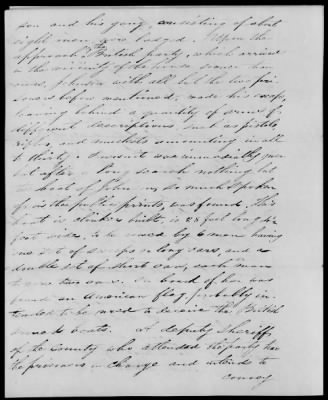 son and his gang, consisting of about
eight men, was lodged. Upon the
approach the British party, which arrived
in the vicinity of the house some two
hours, Johnson with all but the two pri-
soners before mentioned, made his escape,
leaving behind a quantity of arms of
different descriptions, such as pistols,
rifles, and muskets amounting in all
to thirty. Pursuit was
but after a long search nothing but
the boat of Johnson, so much spoken
of in the public prints, was found. This
boat is clinker built, is 28 feet long by
feet wide, to be rowed by 6 men having
one set of sweeps or long oars, and a
double set of short oars, each man
to row two oars. On board of her was
found an American flag, probably in-
tended to be used to deceive the British
boats. A deputy Sheriff
of the County who attended the party has
the prisoners in charge and intends to
convey